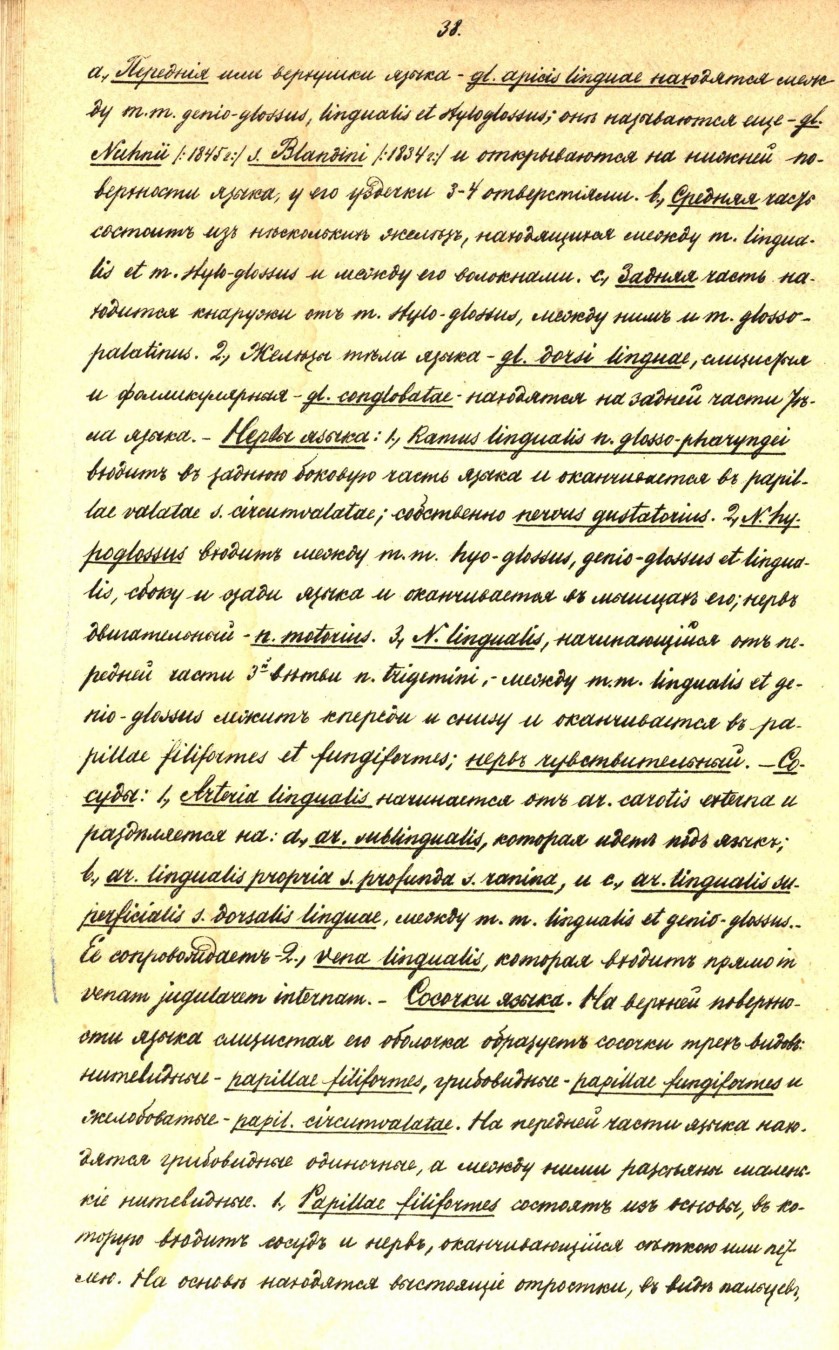 38.
а, Переднія или верхушки языка - gl. apicis linguae находятся меж-
ду m.m. genio-glossus, lingualis et styloglossus; онѣ называются еще - gl.
Nuhnii /:1845 г:/ s. Blandini /:1834 г:/ и открываются на нижней по-
верхности языка, у его уздечки 3-4 отверстіями. b, Средняя часть
состоитъ изъ нѣсколькихъ железъ, находящихся между m. lingua-
lis et m. stylo-glossus и между его волокнами. c, Задняя часть на-
ходится кнаружи отъ m. stylo-glossus, между нимъ и m. glosso-
palatinus. 2, Железы тѣла языка - gl. dorsi linguae, слизистыя
и фолликулярныя - gl. conglobatae - находятся на задней части тѣ-
ла языка. - Нервы языка: 1, Ramus lingualis n. glosso-pharyngei
входитъ въ заднюю боковую часть языка и оканчивается въ papil-
lae valatae s. circumvalatae; собственно nervus gustatorius. 2, N. hy-
poglossus входитъ между m.m. hyo-glossus, genio-glossus et lingua-
lis, сбоку и сзади языка и оканчивается въ мышцахъ его; нервъ
двигательный - n. motorius. 3, N. lingualis, начинающійся отъ пе-
редней части 3й вѣтви n. trigemini, - между m.m. lingualis et ge-
nio-glossus лежитъ кпереди и снизу и оканчивается въ pa-
pillae filiformes et fungiformes; нервъ чувствительный. - Со-
суды: 1, Arteria lingualis начинается отъ ar. carotis externa и
раздѣляется на: a, ar. sublingualis, которая идетъ подъ языкъ;
b, ar. lingualis propria s. profunda s. ranina, и c, ar. lingualis su-
perficialis s. dorsalis linguae, между m.m. lingualis et genio-glossus. -
Её сопровождаетъ - 2, vena lingualis, которая входитъ прямо in
venam jugularem internam. - Сосочки языка. На верхней поверхно-
сти языка слизистая его оболочка образуетъ сосочки трехъ видовъ:
нитевидные - papillae filiformes, грибовидные - papillae fungiformes и
желобоватые - papil. circumvalatae. На передней части языка нахо-
дятся грибовидные одиночные, а между ними разсѣяны малень-
кіе нитевидные. 1, Papillae filiformes состоятъ изъ основы, въ ко-
торую входитъ сосудъ и нервъ, оканчивающійся сѣткою или пет-
лею. На основѣ находятся выстоящіе отростки, въ видѣ пальцевъ,